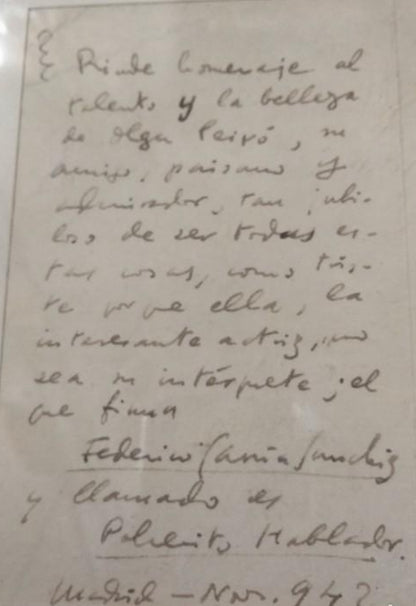 Rinde homenaje al
talento y la belleza
de Olga Peiró, su
amigo, paisano y
admirador, tan jubi-
loso de ser todas es-
tas cosas, como tris-
te porque ella, la
interesante actriz, no
sea su intérprete; el
que firma
Federico García Sanchiz
y llamado es
Hablador.
Madrid - Nov. 94